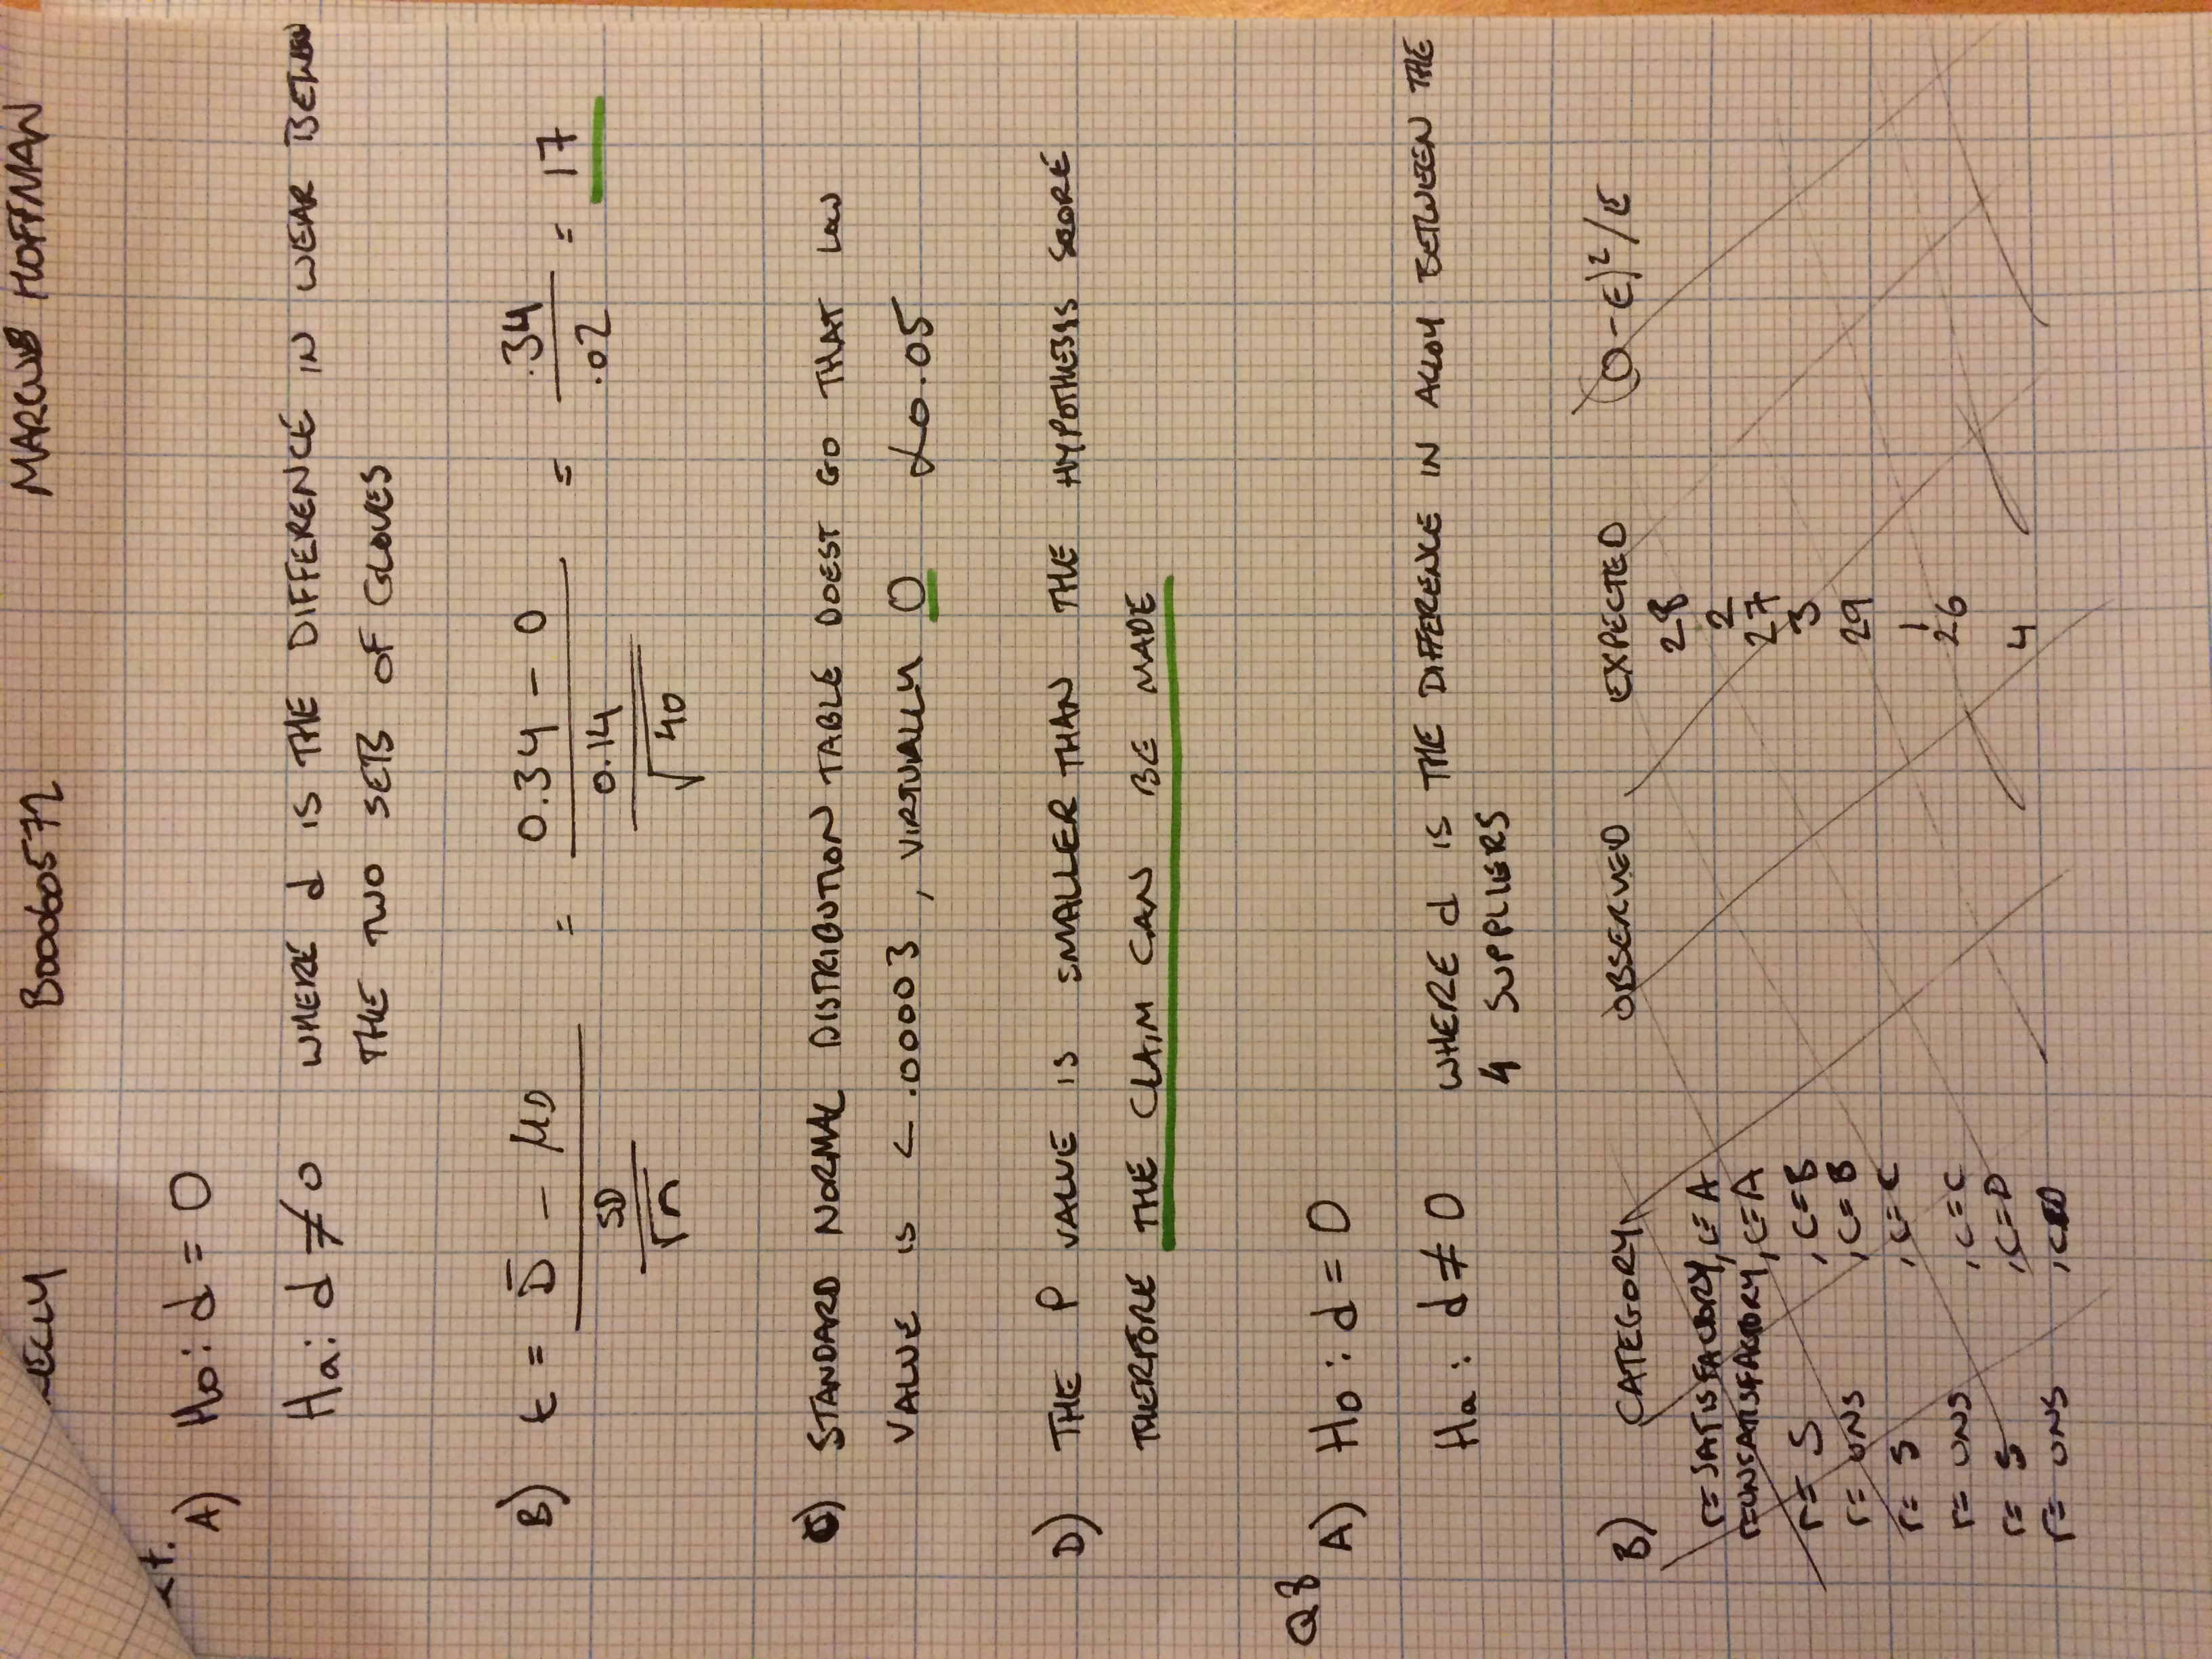 B00060572 MARCUS HOFFMAN
A) Ho: d = 0
Ha: d ≠ 0 WHERE d IS THE DIFFERENCE IN WEAR BETWEEN
THE TWO SETS OF GLOVES
B) t = (D̄ - μD) / (SD / √n) = (0.34 - 0) / (0.14 / √40) = .34 / .02 = 17
C) STANDARD NORMAL DISTRIBUTION TABLE DOEST GO THAT LOW
VALUE IS < .00003, VIRTUALLY 0 ∠0.05
D) THE P VALUE IS SMALLER THAN THE HYPOTHESIS SCORE
THERFORE THE CLAIM CAN BE MADE
Q8
A) Ho : d = 0
Ha : d ≠ 0 WHERE d IS THE DIFFERENCE IN ALLOY BETWEEN THE
4 SUPPLIERS
B) CATEGORY OBSERVED EXPECTED (O-E)²/E
28
r= SATISFACTORY, c= A
2
r=UNSATISFACTORY, c=A
27
r= S , c=B
3
r= UNS , c=B
29
r= S , c=C
1
r= UNS , c=C
26
r= S , c=D
4
r= UNS